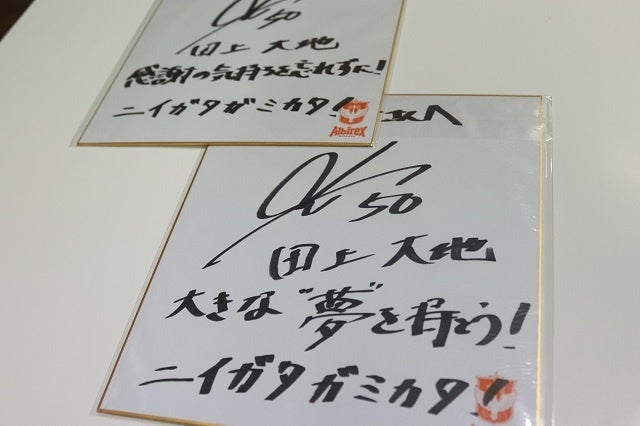 50
田上 大地
感謝の気持ちを忘れずに!
ニイガタガミカタ!
Albirex
50
田上 大地
大きな"夢"を持とう!
ニイガタガミカタ!